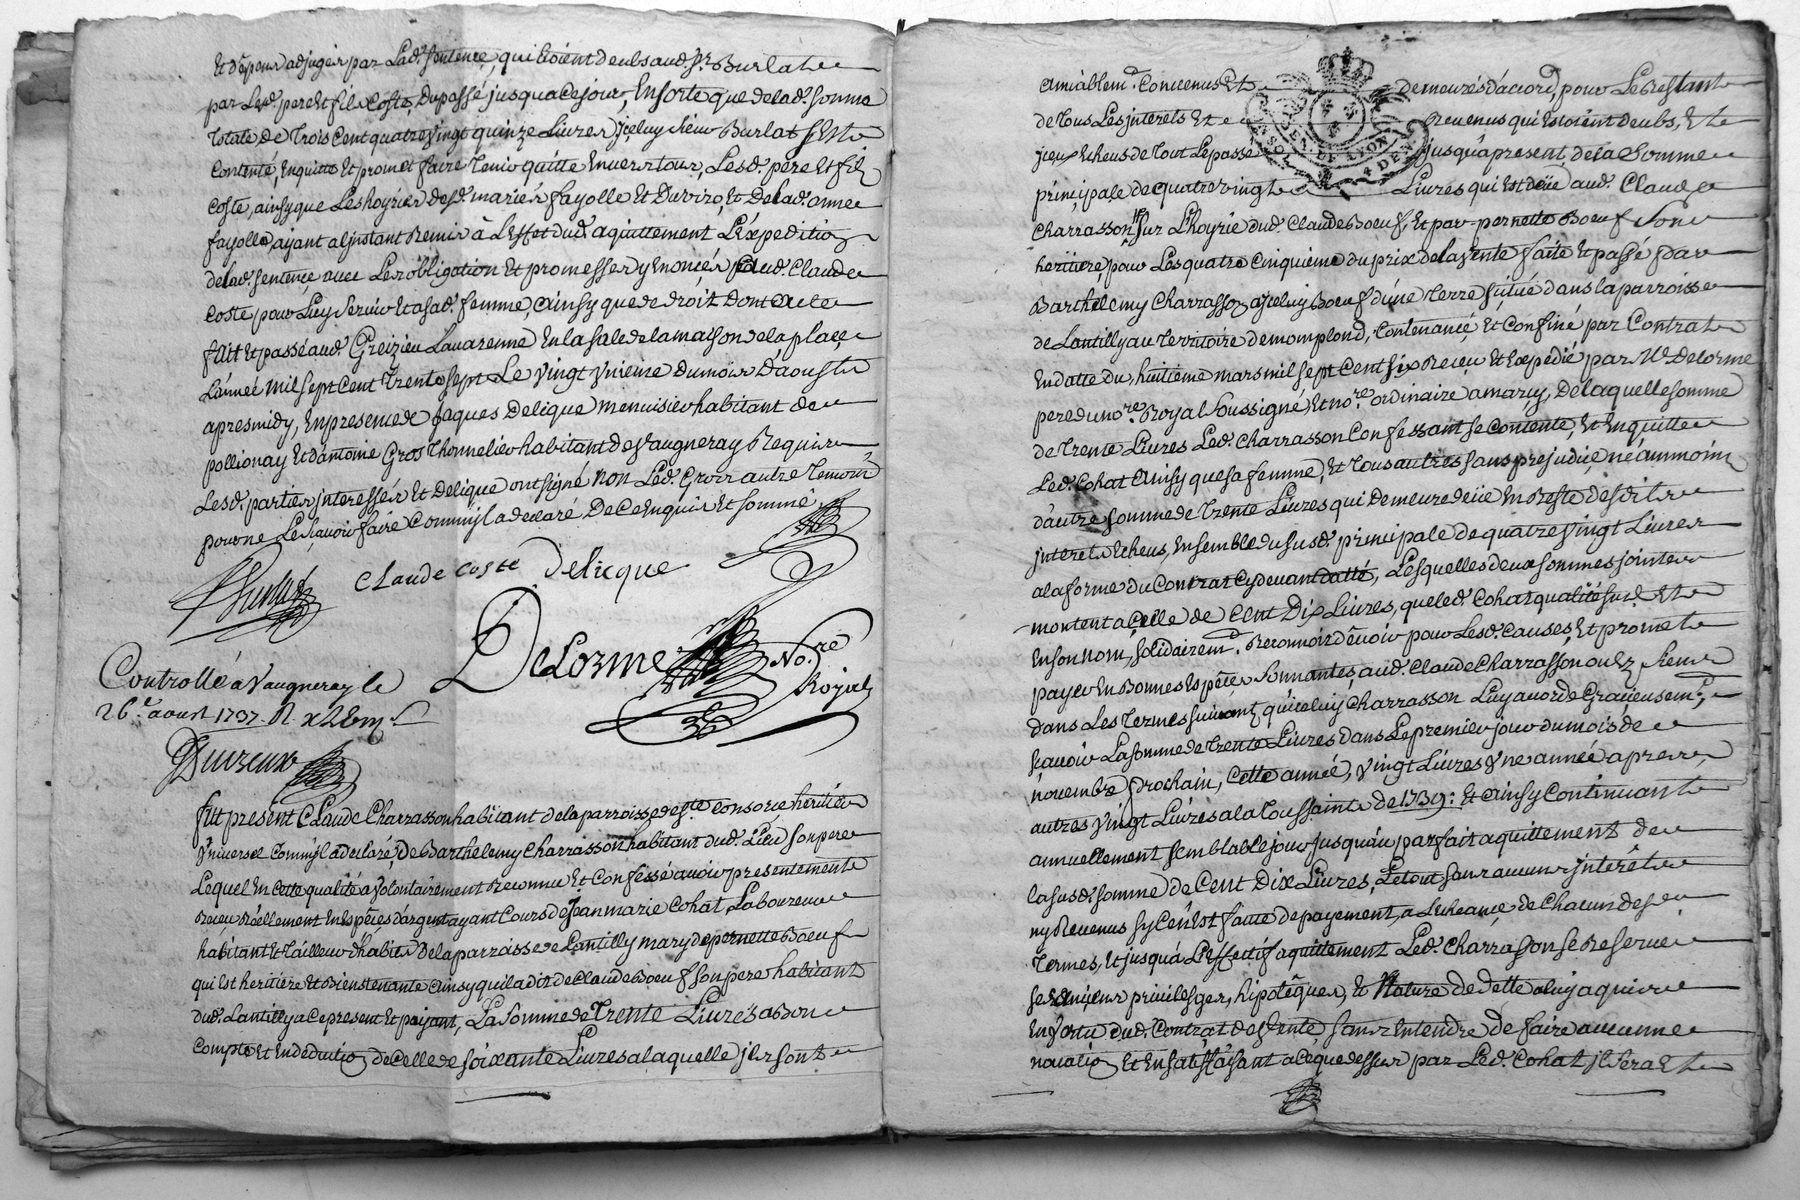 et dépens adjugés par lad. sentence, qui etoient deubs aud. sr. Burlat
par lesd. pere et fils Coste, du passé jusqua ce jour, en sorte que de lad. somme
totale de trois cent quatre vingt quinze Livres jceluy sieur Burlat s'est
contenté, en quitte et promet faire tenir quitte envers tous, lesd. pere et fils
Coste, ainsy que les hoyries desd. mariés fayolle et Duvizo, et de lad. anne
fayolle, ayant a ljnstant remis à l'effet dud. aquittement L'éxpedition
de lad. sentence avec les obligation et promesses y enoncés aud. Claude
Coste pour luy servir et a sad. femme, ainsy que de droit dont acte
fait et passé aud. Greizieu Lavarenne en la sale de la maison de la place
L'année mil sept cent trente sept Le vingt vnieme du mois d'aoust
apres midy, en presence de Jaques Delique menuisier habitant de
pollionay et d'antoine Gros thonnelier habitant de vaugneray Requis
Lesd. parties jnteressés et Delique ont signé non Led. Gros autre temoin
pour ne Le sçavoir faire comm'jl a declaré De ce enquis et sommé
Burlat Claude Coste Delicque
Delorme No.re
Royal
Controllé à Vaugneray le
26.e aoust 1737. R x2s 6m
fût present Claude Charrasson habitant de la parroisse de ste. Consorce heritier
vniversel comm'jl a declaré De Barthelemy Charrasson habitant dud. Lieu son pere
Lequel en cette qualité a volontairement Reconnu et Confessé avoir presentement
Reçeu Réellement en Espéces d'argent ayant cours de Jean marie Cohat Laboureur
habitant et tailleur d'habits de la parroisse de Lantilly mary de pernette Boeuf
qui est heritiere et Bienstenante ainsy quil a dit de Claude Boeuf son pere habitant
dud. Lantilly a ce present et payant, La somme de Trente Livres a Bon
compte et en deduction de celle de soixante Livres a laquelle jls sont
amiablemt. Convenus et demeurés d'accord, pour Le Restant
de tous Les jnterets et Revenus qui estoient deubs, et
jceux Echeus de tout Le passé jusqu'a present, de la somme
principale de quatre vingt Livres qui est deüe aud. Claude
Charrasson sur L'hoyrie dud. Claude Boeuf, et par pernette Boeuf son
heritiere, pour Les quatre cinquieme du prix de la vente faite et passé par
Barthelemy Charrasson a jceluy Boeuf d'une terre située dans la parroisse
de Lantilly au territoire de momplond, Contenancé et Confiné par Contrat
En datte du huitieme mars mil sept cent six Reçeu et Expédié par Me. Delorme
pere du no.re Royal soussigné, et no.re ordinaire a marcy, De laquelle somme
de trente Livres Led. Charrasson Confessant se contente, et en quitte
Led. Cohat ainsy que sa femme, et tous autres sans prejudice néammoins
d'autre somme de trente Livres qui demeure deüe en Reste desdits
jnterets Echeus, ensemble du susd. principale de quatre vingt Livres
a la forme du Contrat cy devant datté, Lesquelles deux sommes jointes
montent a celle de cent Dix Livres, que led. Cohat qualité sur.d et
en son nom, solidairemt. Reconnoit dévoir pour Lesd. causes, et promet
payer en Bonnes espéces sonnantes aud. Claude Charrasson ou ez siens
dans Les termes suivant, qu'jceluy Charrasson Luy accorde Gracieusemt;
sçavoir La somme de trente Livres dans Le premier jour du mois de
novembre prochain, cette année, vingt Livres vne année apres,
autres vingt Livres a la toussaints de 1739: et ainsy Continuant
annuellement semblable jour jusqu'au parfait aquittement de
la susd. somme de Cent Dix Livres, Le tout sans aucuns jntérêts
ny Revenus sy ce n'est faute de payement, a l'echeance de Chacun des
termes, et jusqu'a L'effectif aquittement Led. Charrasson se Reserve
ses privileges, hipotéques, et Nature de dette a luy aquis
en vertu dud. Contrat de vente, sans entendre de faire aucunne
novation et en satisfaisant a ce que dessus par Led. Cohat jl sera et